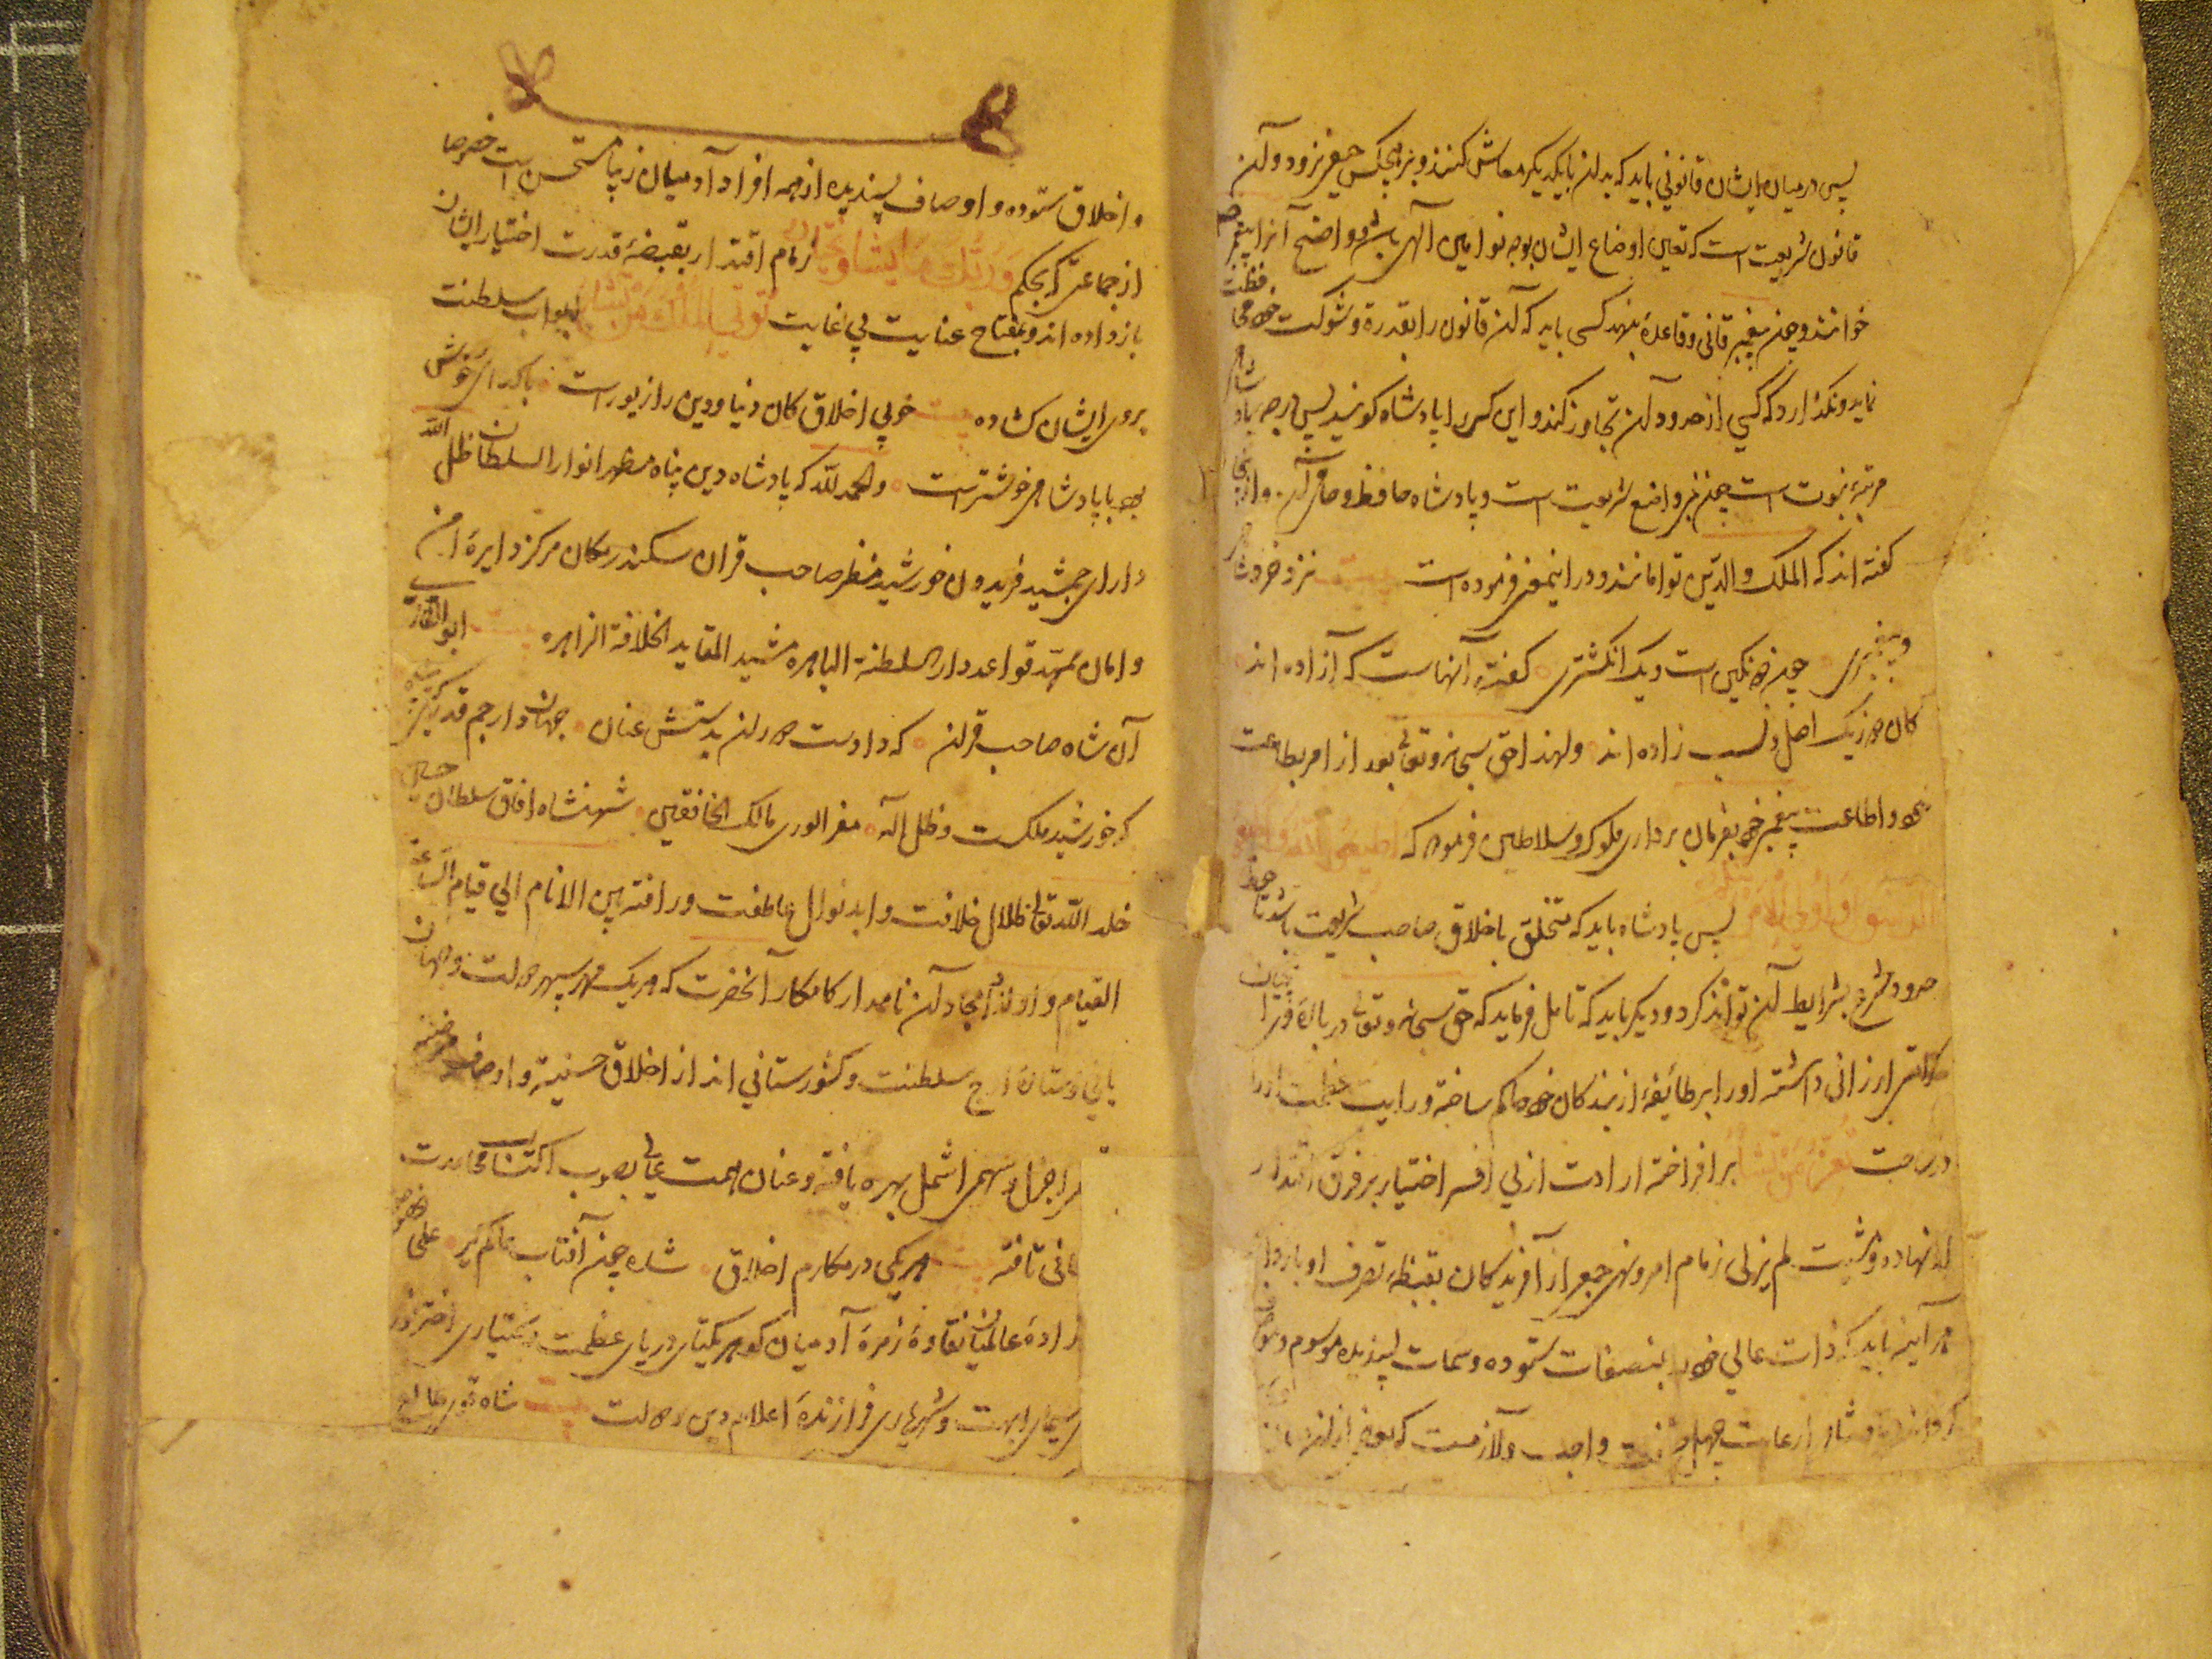 پس در میان ایشان قانونی باید که بدان بایکدیگر معاش کنند و بر هیچکس حیفی نرود و آن
قانون شریعت است که تعین اوضاع ایشان بوجه نوامیس الهی باشد و واضع آنرا پیغمبر
خوانند و چون پیغمبر قانون و قاعدهٔ بنهد کسی باید که آن قانون را بقدرت و شوکت خود محافظت
نماید و نگذارد که کسی از حدود آن تجاوز کند و این کس را پادشاه گویند پس درجه پادشاهی
مرتبهٔ نبوت است چه پیغمبر واضع شریعت است و پادشاه حافظ و حامی آن و ازینجا
گفته اند که الملک والدین توامان و در اینمعنی فرموده است بیت نزد خرد شاهی
و پیغمبری چون دو نگین است و یک انگشتری گفته آنهاست که آزاده اند
کان دو ز یک اصل و نسب زاده اند ولهذا حق سبحانه وتعالی بعد از امر بطاعت
خود و اطاعت پیغمبر خود بفرمان برداری ملوک و سلاطین فرموده که اطیعوا الله واطیعوا
الرسول واولی الامر منکم پس پادشاه باید که متخلق باخلاق صاحب شریعت باشد تا حفظ
حدود شرع بشرایط آن تواند کرد و دیگر باید که تامل فرماید که حق سبحانه وتعالی
ارزانی داشته او را بر طائفهٔ از بندگان خود حاکم ساخته و رایت عظمت او را
تعز من تشاء برافراخته ارادت ازلی افسر اختیار بر فرق اقتدار
او نهاده و مشیت لم یزلی زمام امر و نهی جمعی از آفریدگان بقبضهٔ تصرف او باز داده
هر آینه باید که ذات عالی خود را بصفات ستوده و سمات پسندیده موسوم
واجب و لازمست که بعضی از
و اخلاق ستوده و اوصاف پسندیده از همه افراد آدمیان زیبا و مستحسن است خصوصا
از جماعتی که بحکم وربک یخلق ما یشاء ویختار زمام اقتدار بقبضهٔ قدرت اختیار ایشان
باز داده اند و بمفتاح عنایت بی غایت تؤتی الملک من تشاء ابواب سلطنت
بروی ایشان گشاده بیت خوبی اخلاق کان دنیا و دین را زیورست با گدایی خوش
بود با پادشاهی خوشترست و الحمد لله که پادشاه دین پناه مظهر انوار السلطان ظل الله
دارای جمشید فریدون خورشید منظر صاحب قران سکندر مکان مرکز دایرهٔ امن
و امان ممهد قواعد دار السلطنة الباهره مشید المقاید الخلافة الزاهره بیت ابوالغازی
آن شاه صاحب قران که دادست دوران بدستش عنان جهاندار جم قدر
که خورشید ملکست و ظل اله معز الوری مالک الخافقین شهنشاه آفاق سلطان حسین
خلد الله تعالی ظلال خلافته وابد نوال عاطفته ورافته بین الانام الی قیام الساعة
القیام و اولاد امجاد آن نامدار کامکار آنحضرت که هریک مهر سپهر دولت و جهان
بانی و ستارهٔ اوج سلطنت و کشورستانی اند از اخلاق حسنیة و اوصاف مرضیه
حظ اجزل و سهم اشمل بهره یافته و عنان همت عالی بصوب اکتساب محامدت
تافته بیت هر یکی در مکارم اخلاق شده چون آفتاب عالم گیر علی الخصوص
زادهٔ عالمیان نقاوهٔ زمرهٔ آدمیان گوهر یکتای دریای عظمت و بختیاری اختر
سیمای ابهت و شهریاری فرازندهٔ اعلام دین و دولت بیت شاه